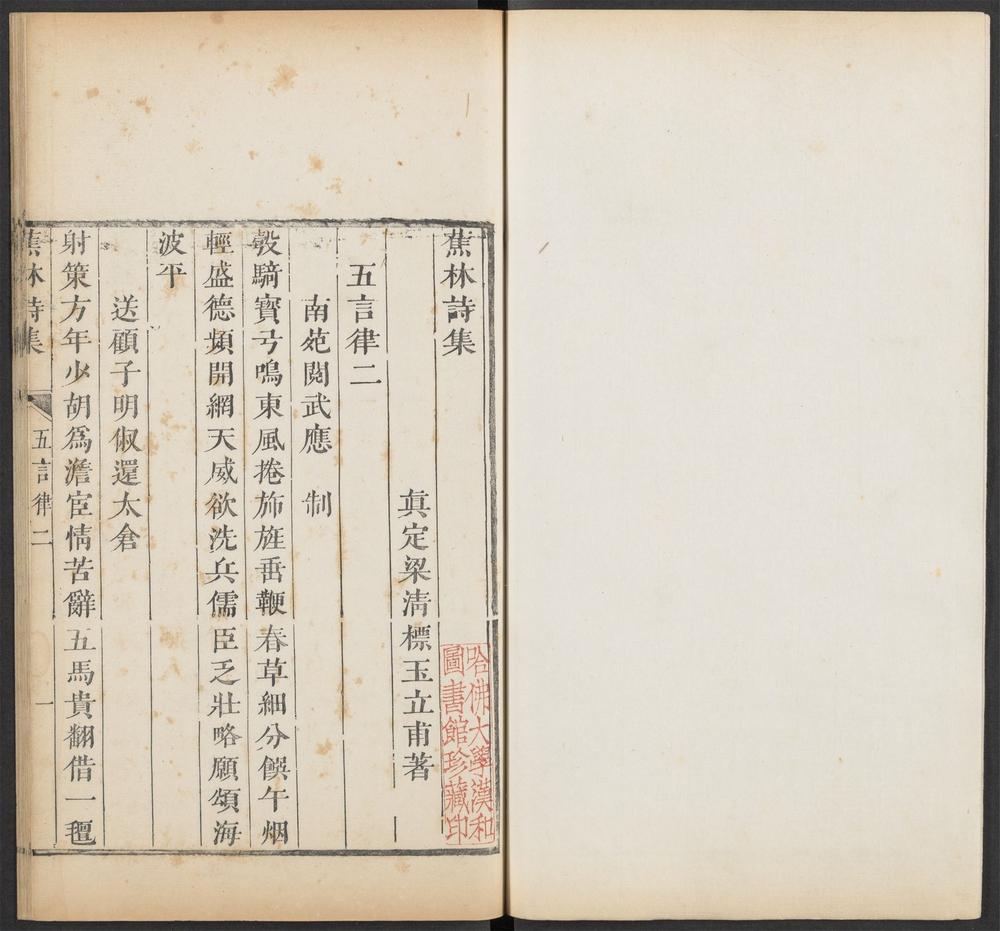 蕉林詩集
真定梁清標玉立甫著
五言律二
南苑閱武應　制
彀騎寳弓鳴東風捲斾旌垂鞭春草細分饌午烟
輕盛德頻開網天威欲洗兵儒臣乏壯略願頌海
波平
送顧子明俶還太倉
射策方年少胡爲澹宦情苦辭五馬貴翻借一氊
蕉林詩集
五言律二
一
哈佛大學漢和
圖書館珍藏印